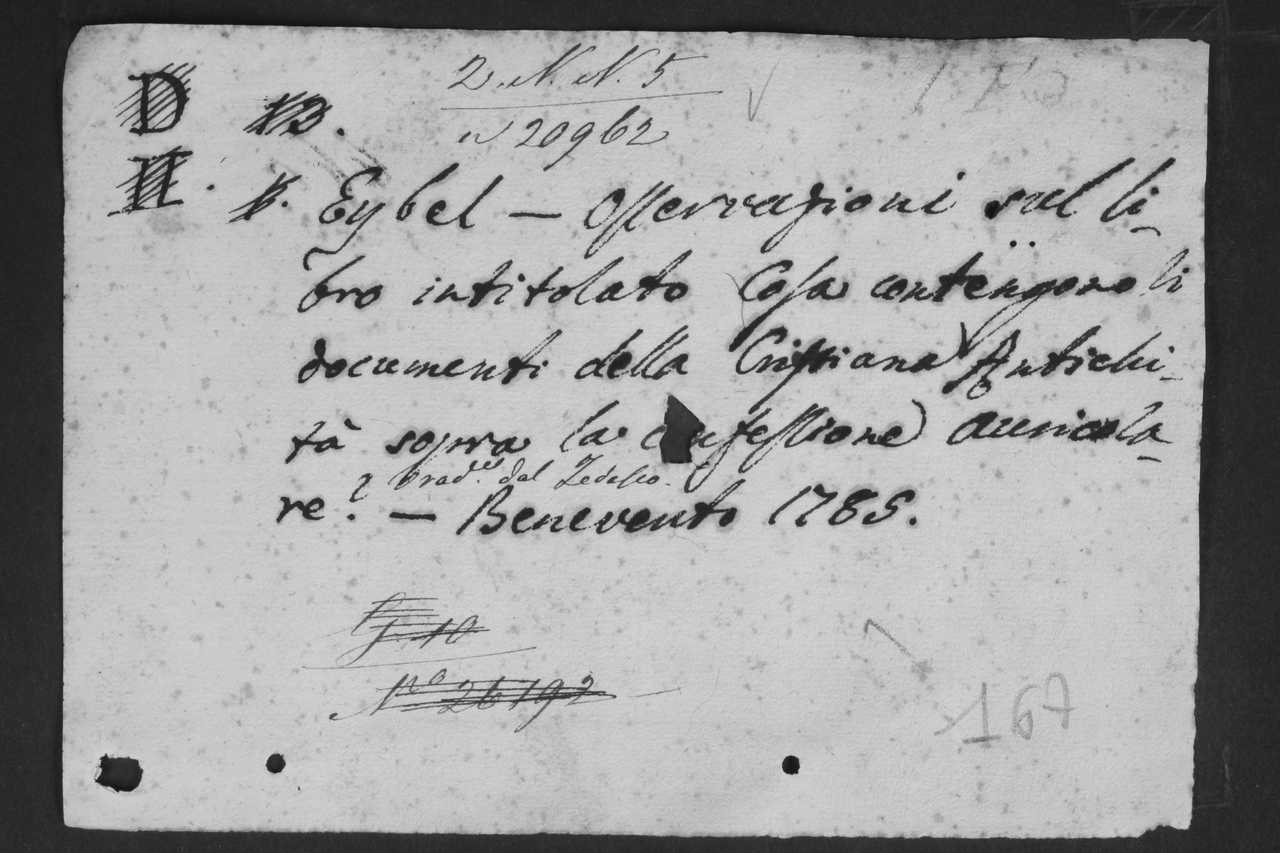 2. N. N. 5
D
13.
n 20962
II.
Eybel — Osservazioni sul li-
bro intitolato Cosa contengono li
documenti della Cristiana Antichi-
tà sopra la confessione auricola-
trad.e dal Tedesco.
re? — Benevento 1785.
G. 10
N.o 26192
167